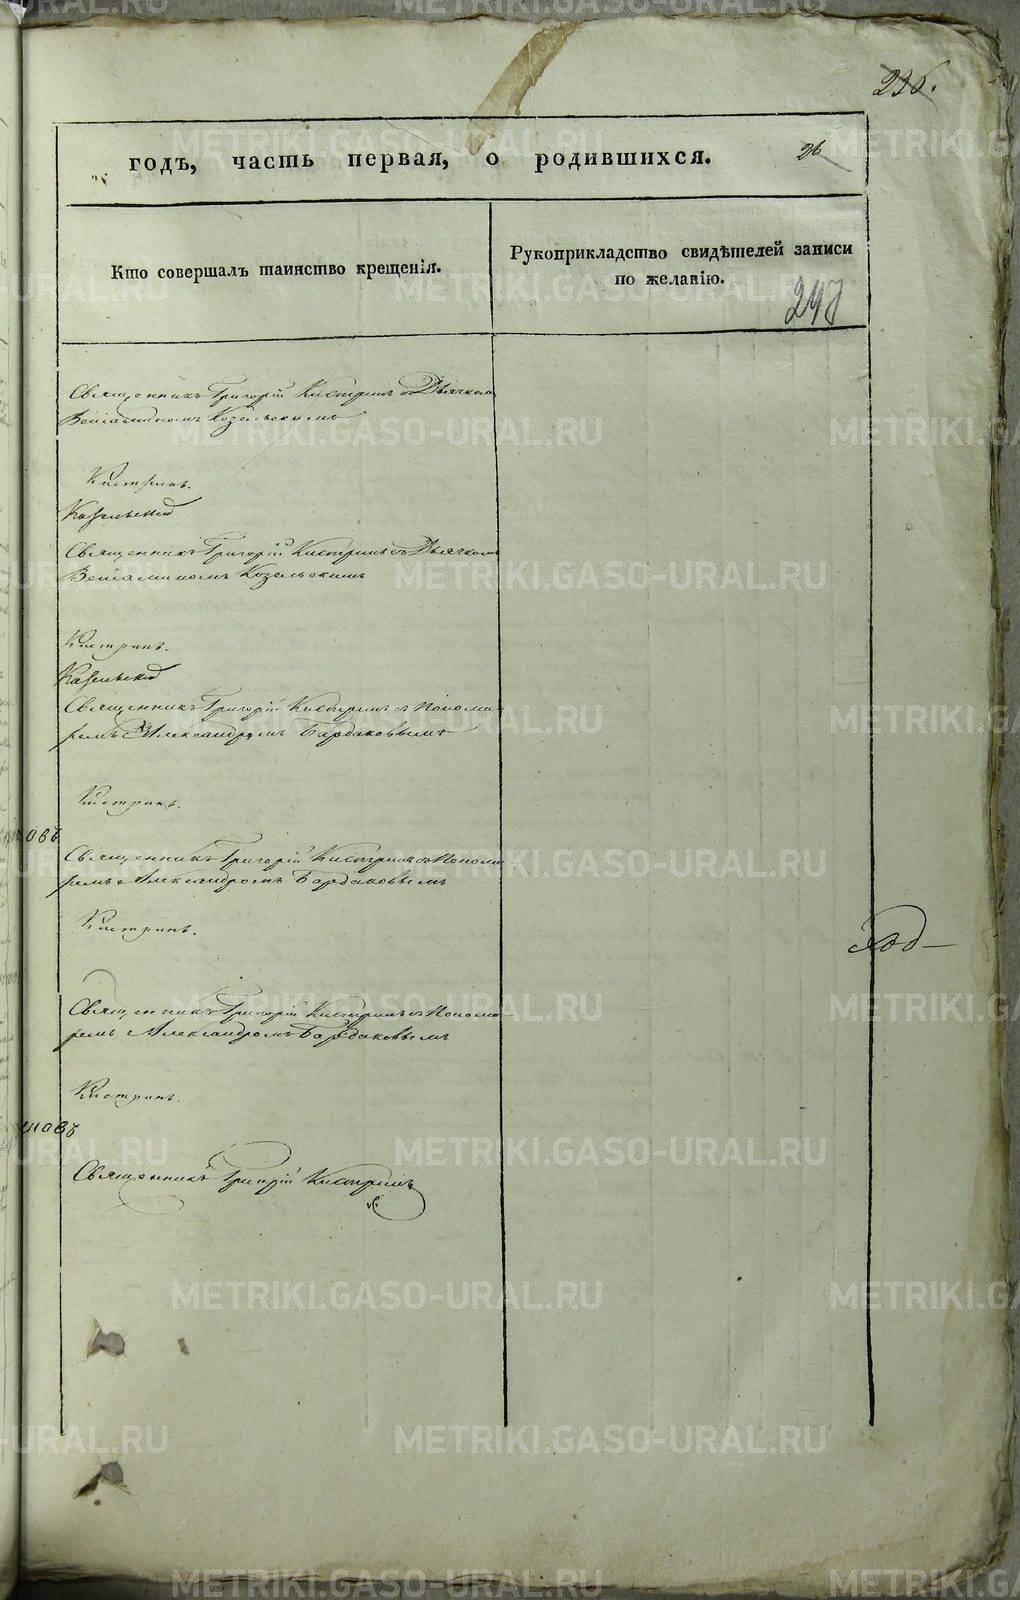 236.
годъ, часть первая, о родившихся.
26
Кто совершалъ таинство крещенія.
Рукоприкладство свидѣтелей записи
по желанію.
Священникъ Григорій Кистринъ съ Дьячкомъ
Веніаминомъ Козельскимъ
Кистринъ.
Козельский
Священникъ Григорій Кистринъ съ Дьячкомъ
Веніаминомъ Козельскимъ
Кистринъ.
Козельский
Священникъ Григорій Кистринъ съ Понома-
ремъ Александромъ Бардаковымъ
Кистринъ.
овъ
Священникъ Григорій Кистринъ съ Понома-
ремъ Александромъ Бардаковымъ
Кистринъ.
Священникъ Григорій Кистринъ съ Понома-
ремъ Александромъ Бардаковымъ
Кистринъ.
Священникъ Григорій Кистринъ
METRIKI.GASO-URAL.RU